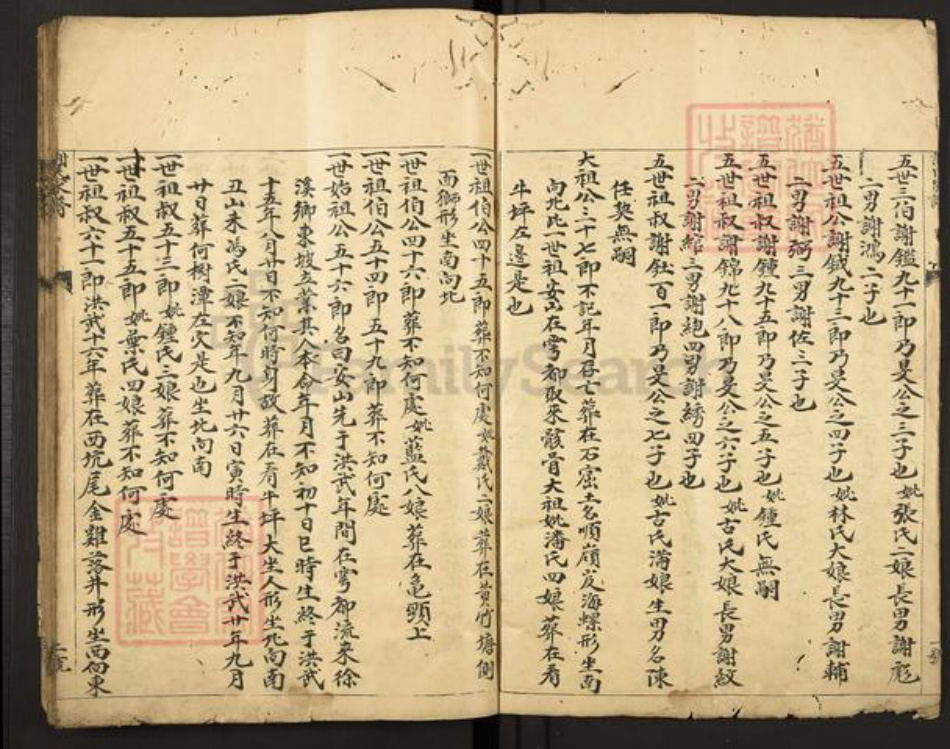 五世三伯謝鑑九十一郎乃旻公之三子也妣張氏二娘長男謝彪
二男謝鴻二子也
五世祖公謝鉞九十三郎乃旻公之四子也妣林氏大娘長男謝輔
二男謝弼三男謝佐三子也
五世祖叔謝鍾九十五郎乃旻公之五子也妣鍾氏無嗣
五世祖叔謝錦九十八郎乃旻公之六子也妣古氏大娘長男謝紋
二男謝綰三男謝絁四男謝綉四子也
五世祖叔謝鈺一百一郎乃旻公之七子也妣古氏滿娘生男名陳
任契無嗣
大祖公三十七郎不記年月存亡葬在石窟土名順嶺岌海螺形坐南
向北比一世祖安山在雩都取來骸骨大祖妣潘氏四娘葬在看
牛坪左邊是也
一世祖伯公四十五郎葬不知何處妣戴氏二娘葬在黃竹塘側
面獅形坐南向北
一世祖伯公四十六郎葬不知何處妣藍氏八娘葬在龜頭上
一世祖伯公五十四郎五十九郎葬不知何處
一世始祖公五十六郎名曰安山先于洪武年間在雩都流來徐
溪鄉東坡立業其八本命年月不知初十日巳時生終于洪武
十五年八月廿日不知何時身故葬在看牛坪大坐人形坐北向南
丑山未馮氏二娘不知年九月廿六日寅時生終于洪武廿年九月
廿日葬何樹潭左穴是也坐北向南
一世祖叔五十三郎妣鍾氏三娘葬不知何處
一世祖叔五十五郎妣葉氏四娘葬不知何處
一世祖叔六十一郎洪武十六年葬在西坑尾金雞落井形坐西向東
FamilySearch